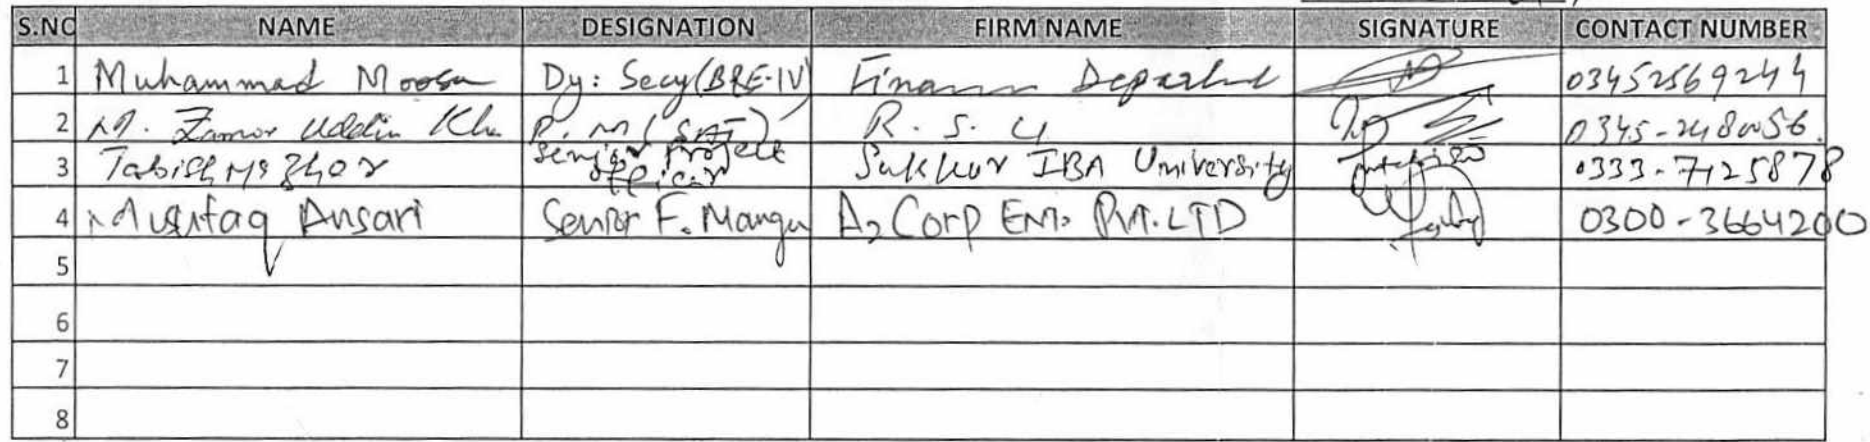 S.NO NAME DESIGNATION FIRM NAME SIGNATURE CONTACT NUMBER
1 Muhammad Moosa Dy: Secy (BRE-IV) Finance Department 03452569244
2 M. Uddin R. S. U
3 Tabish Senior Project Officer Sukkur IBA University 0333-7125878
4 Ansari Senior F. Corp PVT. LTD 0300-3664200
5
6
7
8